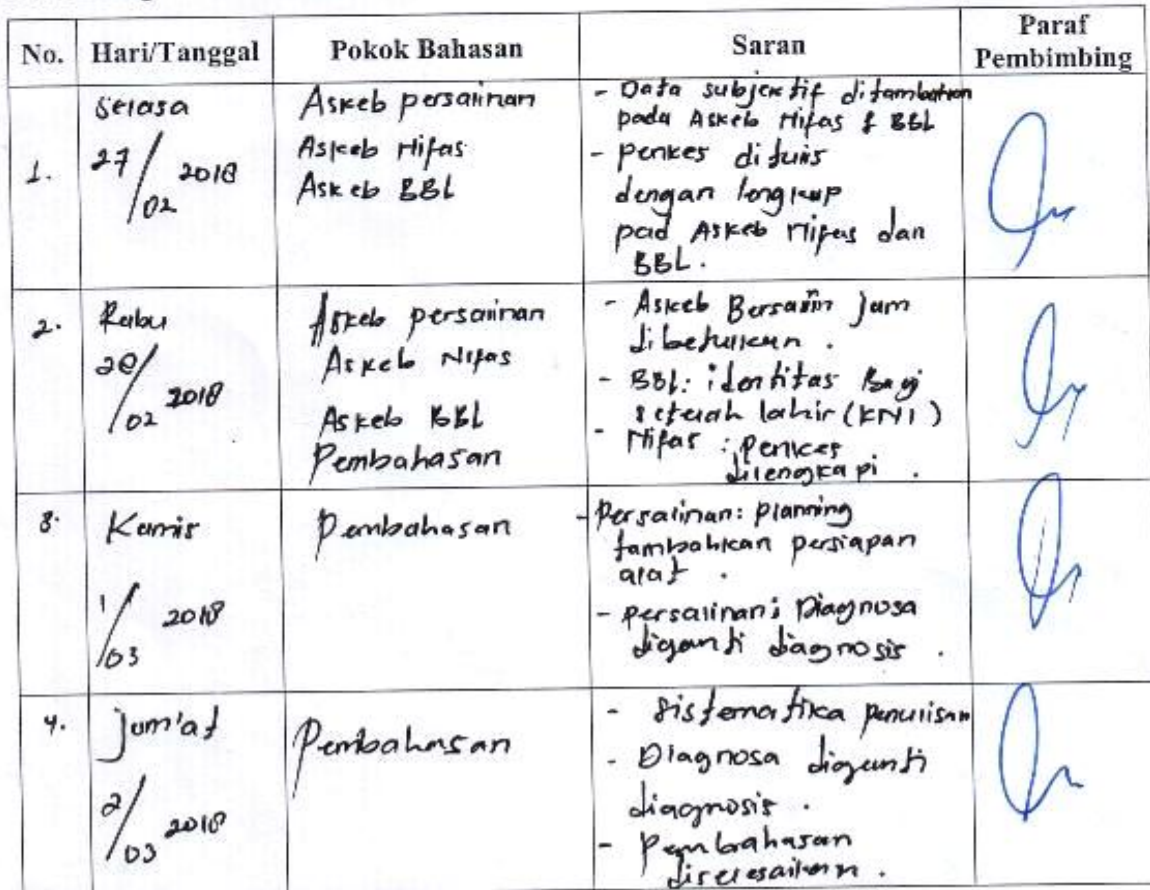 No. Hari/Tanggal Pokok Bahasan Saran Paraf Pembimbing
1.
Selasa
27/02 2018
Askeb persalinan
Askeb Nifas
Askeb BBL
- Data subjektif ditambahkan
pada Askeb Nifas & BBL
- penkes ditulis
dengan lengkap
pad Askeb Nifas dan
BBL.
2.
Rabu
28/02 2018
Askeb persalinan
Askeb Nifas
Askeb BBL
Pembahasan
- Askeb Bersalin jam
dibetulkan.
- BBL: identitas Bayi
setelah lahir (KN1)
- Nifas: penkes
dilengkapi.
3.
Kamis
1/03 2018
Pembahasan
- Persalinan: planning
tambahkan persiapan
alat.
- persalinan: Diagnosa
diganti diagnosis.
4.
Jum'at
2/03 2018
Pembahasan
- Sistematika penulisan
- Diagnosa diganti
diagnosis.
- Pembahasan
diselesaikan.